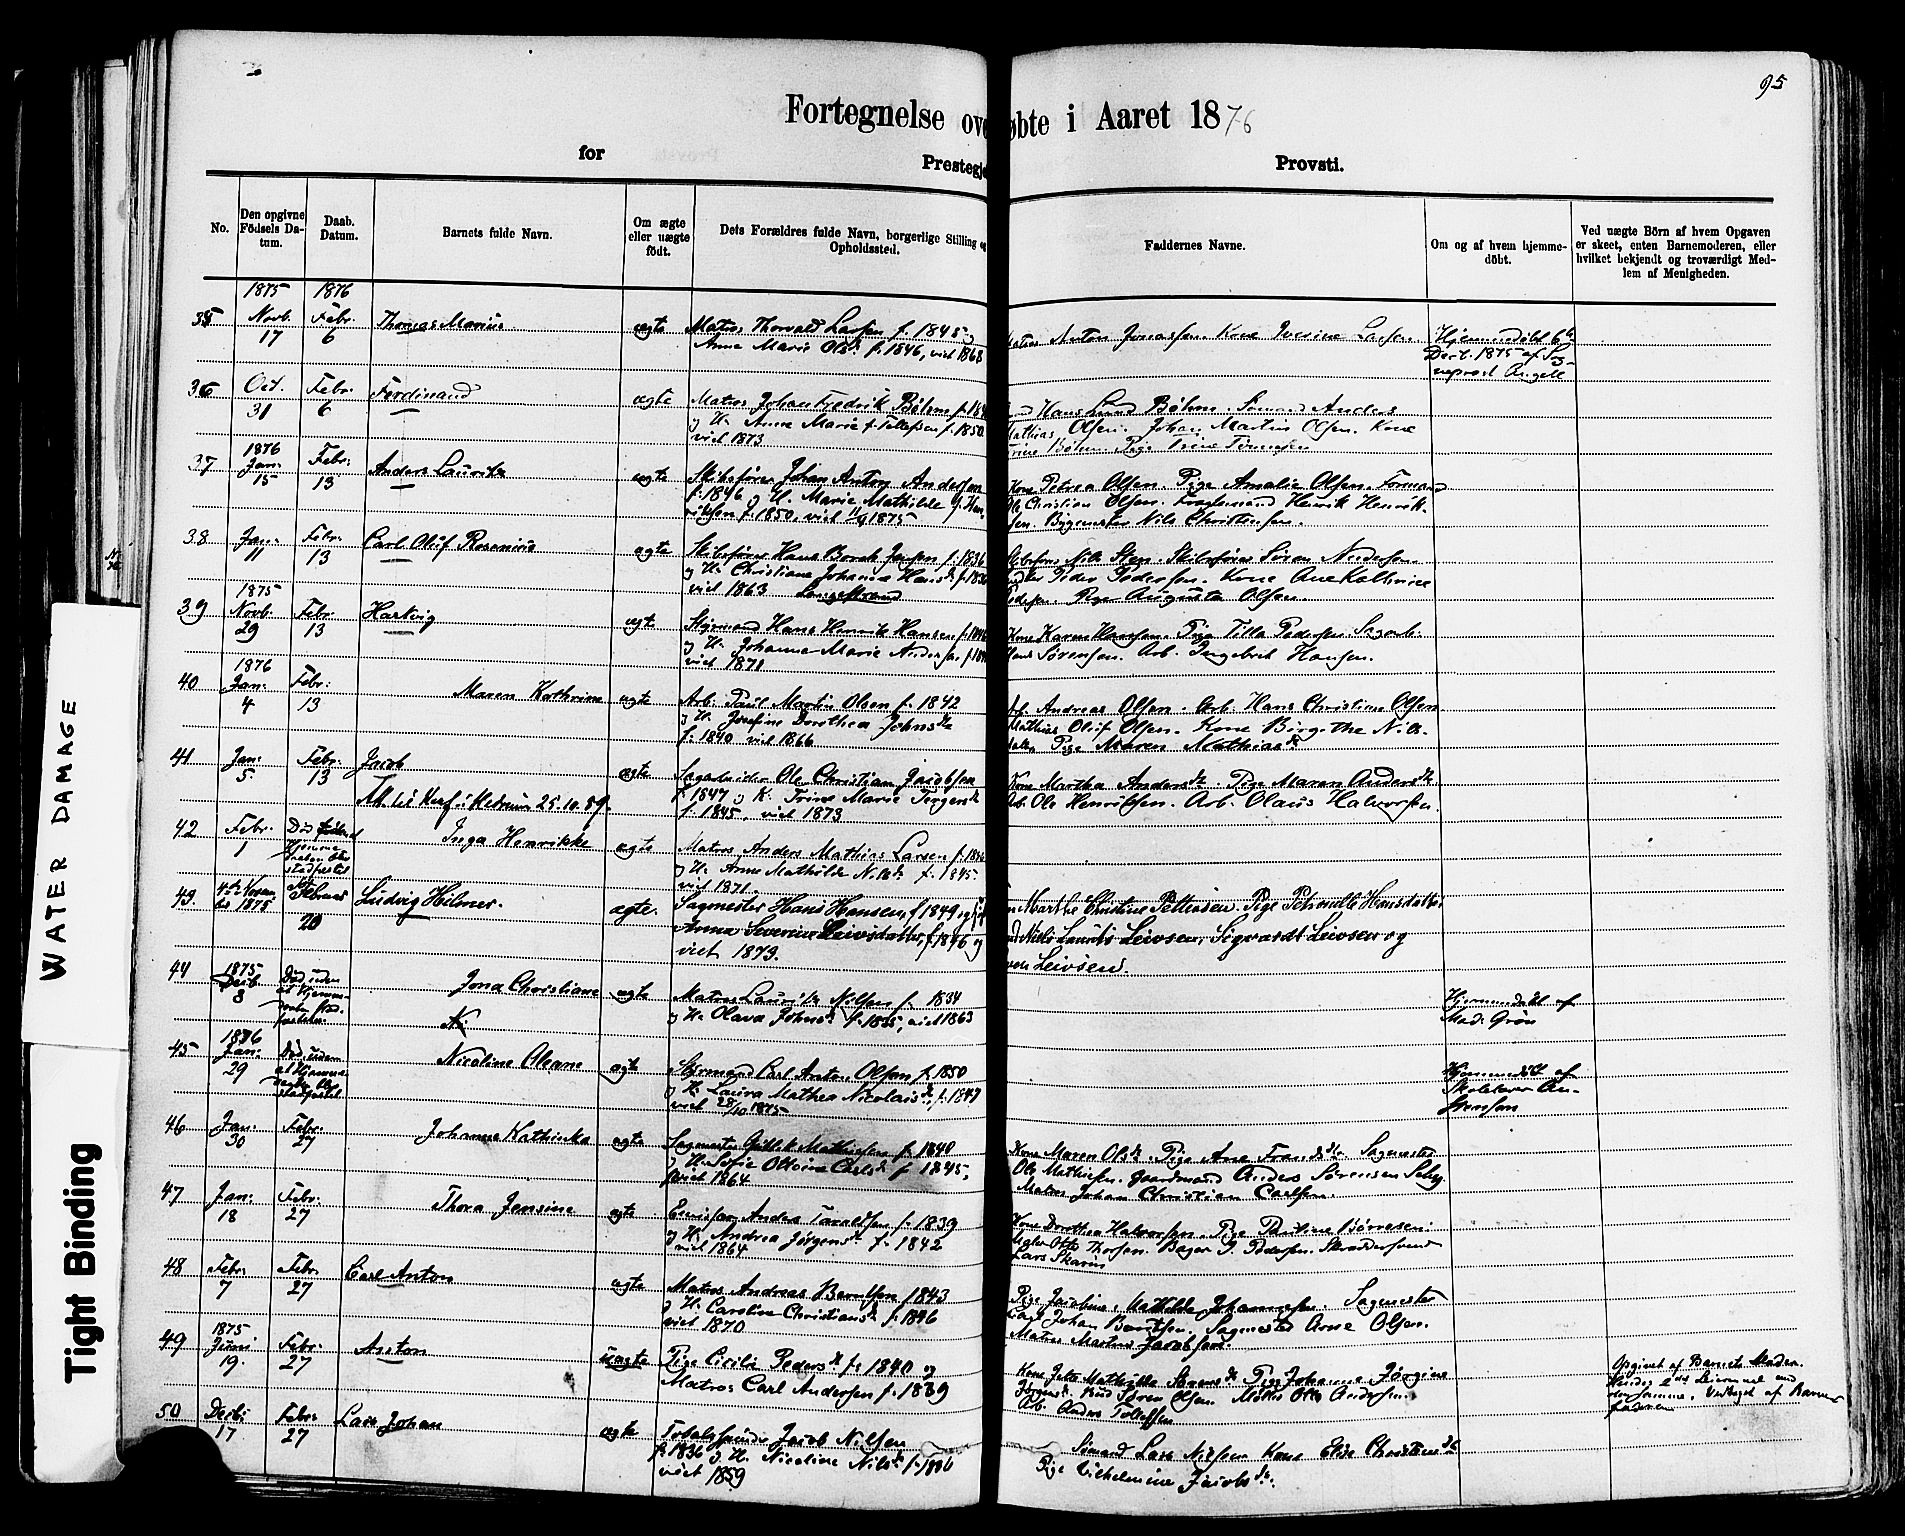 95
Fortegnelse ove øbte i Aaret 1876
for Prestegje Provsti.
No.
Den opgivne Födsels Datum.
Daab. Datum.
Barnets fulde Navn.
Om ægte eller uægte födt.
Dets Forældres fulde Navn, borgerlige Stilling og Opholdssted.
Faddernes Navne.
Om og af hvem hjemmedöbt.
Ved uægte Börn af hvem Opgaven er skeet, enten Barnemoderen, eller hvilket bekjendt og troværdigt Medlem af Menigheden.
1875 1876
35 Novb. 17 Febr. 6 Thomas Marius ægte Matros Thorvald Larsen f. 1845 og
Anne Marie Olsdr f. 1846, viet 1868
Anton Jonassen. Kone Iverine Larsen.
Hjemmedöbt 6te
Decb. 1875 af Sog-
neprest Angell
36 Oct. 31 Febr. 6 Ferdinand ægte Matros Johan Fredrik Böhm f. 184
og H. Anne Marie f. Tollefsen f. 1850
viet 1873
Hans Lund Böhm. Sömand Anders
Mathias Olsen. Johan Martin Olsen. Kone
Trine Böhm. Pige Trine Tönnesen
1876
37 Jan. 15 Febr. 13 Anders Lauritz ægte Skibsförer Johan Anton Andersen
f. 1846 og H. Marie Mathilde G. Hen-
riksen f. 1850, viet 11/9 1875
Kone Petrea Olsen. Pige Amalie Olsen. Formand
Ole Christian Olsen. Henrik Henrik-
sen. Bygmester Nils Christensen.
38 Jan. 11 Febr. 13 Carl Oluf Rosenius ægte Skibsförer Hans Borch Jensen f. 1836
og H. Christiane Johanna Hansdr f. 1836
viet 1863 Langestrand
Skibsförer Nils Sten. Skibsförer Sören
Peder Pedersen. Kone Ane Kathrine
Pedersen. Pige Augusta Olsen.
1875
39 Novb. 29 Febr. 13 Hartvig ægte Styrmand Hans Henrik Hansen f. 1846
og H. Johanne Marie Andersen f. 18
viet 1871
Kone Karen Hansen. Pige Tilla Pedersen. Sagarb.
Hans Sörensen. Arb. Ingebret Hansen.
1876
40 Jan. 4 Febr. 13 Maren Kathrine ægte Arb. Paul Martin Olsen f. 1842
og H. Josefine Dorothea Johnsdr
f. 1840 viet 1866
Andreas Olsen. Arb. Hans Christian Olsen
Mathias Oluf Olsen. Kone Birgithe Nils-
datter Pige Maren Mathiasdr
41 Jan. 5 Febr. 13 Jacob ægte Sagarbeider Ole Christian Jacobsen
f. 1847 og H. Trine Marie Jörgensdr
f. 1845, viet 1873
Att. til 25.10.89.
Kone Martha Andersdr Pige Maren Andersdr
Arb. Ole Henriksen. Arb. Olaus Halvorsen.
42 Febr. 1 Död uden at
Hjemme-
daaben blev
stadfæstet
Inga Henrikke ægte Matros Anders Mathias Larsen f. 1846
og H. Anne Mathilde Nilsdr f. 1845
viet 1871.
43. 4de Novem-
ber 1875 Februar 20 Ludvig Hilmer. ægte. Sagmester Hans Hansen, f. 1849 og
Anna Severine Leivsdatter, f. 1846
viet 1873.
Marthe Christine Pettersen. Pige Petronelle Hansdatter
Niels Laurits Leivsen, Sigvardt Leivsen og
Leivsen.
44 1875 Decb. 8 Död uden
at Hjemme-
daaben stad-
fæstet
Jona Christiane ægte Matros Laurits Nilsen f. 1834
og H. Olava Johnsdr f. 1835, viet 1863
Hjemmedöbt af
Mad. Grön
45 1876 Jan. 29 Död uden
at Hjemme-
daaben blev
stadfæstet
Nicoline Oleane ægte Styrmand Carl Anton Olsen f. 1850
og H. Laura Mathea Nicolaisdr, f. 1849
viet 28/10 1875
Hjemmedöbt af
Skolelærer An-
stensen
46 Jan. 30 Febr. 27 Johanne Kathinka ægte Sagmester Gullik Mathisen f. 1840
og H. Sofie Ottoine Carlsdr f. 1845,
viet 1864
Kone Maren Olsdr. Pige Ane Frandsdr. Sagmester
Ole Mathisen. Gaardmand Anders Sörensen
Matros Johan Christian Carlsen.
47 Jan. 18 Febr. 27 Thora Jensine ægte Anders Taraldsen f. 1839
og H. Andrea Jörgensdr f. 1842
viet 1864
Kone Dorothea Halvorsen. Pige Pauline Börresen.
Maler Otto Thorsen. Bager P. Pedersen. Skræddersvend
Lars Skarin
48 Febr. 7 Febr. 27 Carl Anton ægte Matros Andreas Berntsen f. 1843
og H. Caroline Christiansdr f. 1846
viet 1870
Pige Jacobine Mathilde Johannesen. Sagmester
Carl Johan Berntsen. Sagmester Arne Olsen.
Matros Martin Jacobsen.
49 1875 Juni 19. Febr. 27 Anton uægte Pige Cicilie Pedersdr f. 1840 og
Matros Carl Andersen f. 1839
Kone Mathilde Pige Johanne Jörgine
Jörgensdr. Sören Olsen. Matros Ole Andersen
Arb. Anders Tollefsen
Opgivet af Barnets Moder.
Hendes 2det Leiermaal med
samme. Vedtaget af Barne-
faderen
50 Decbr. 17 Febr. 27 Lars Johan ægte Jacob Nilsen
f. 1836 og H. Nicoline Nilsdr f. 1836
viet 1859
Sömand Lars Nielsen Kone Elise Christensdr
Pige Vilhelmine Jacobsdr.
WATER DAMAGE
Tight Binding